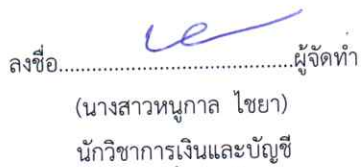 ลงชื่อ....................................ผู้จัดทำ
(นางสาวหนูกาล ไชยา)
นักวิชาการเงินและบัญชี